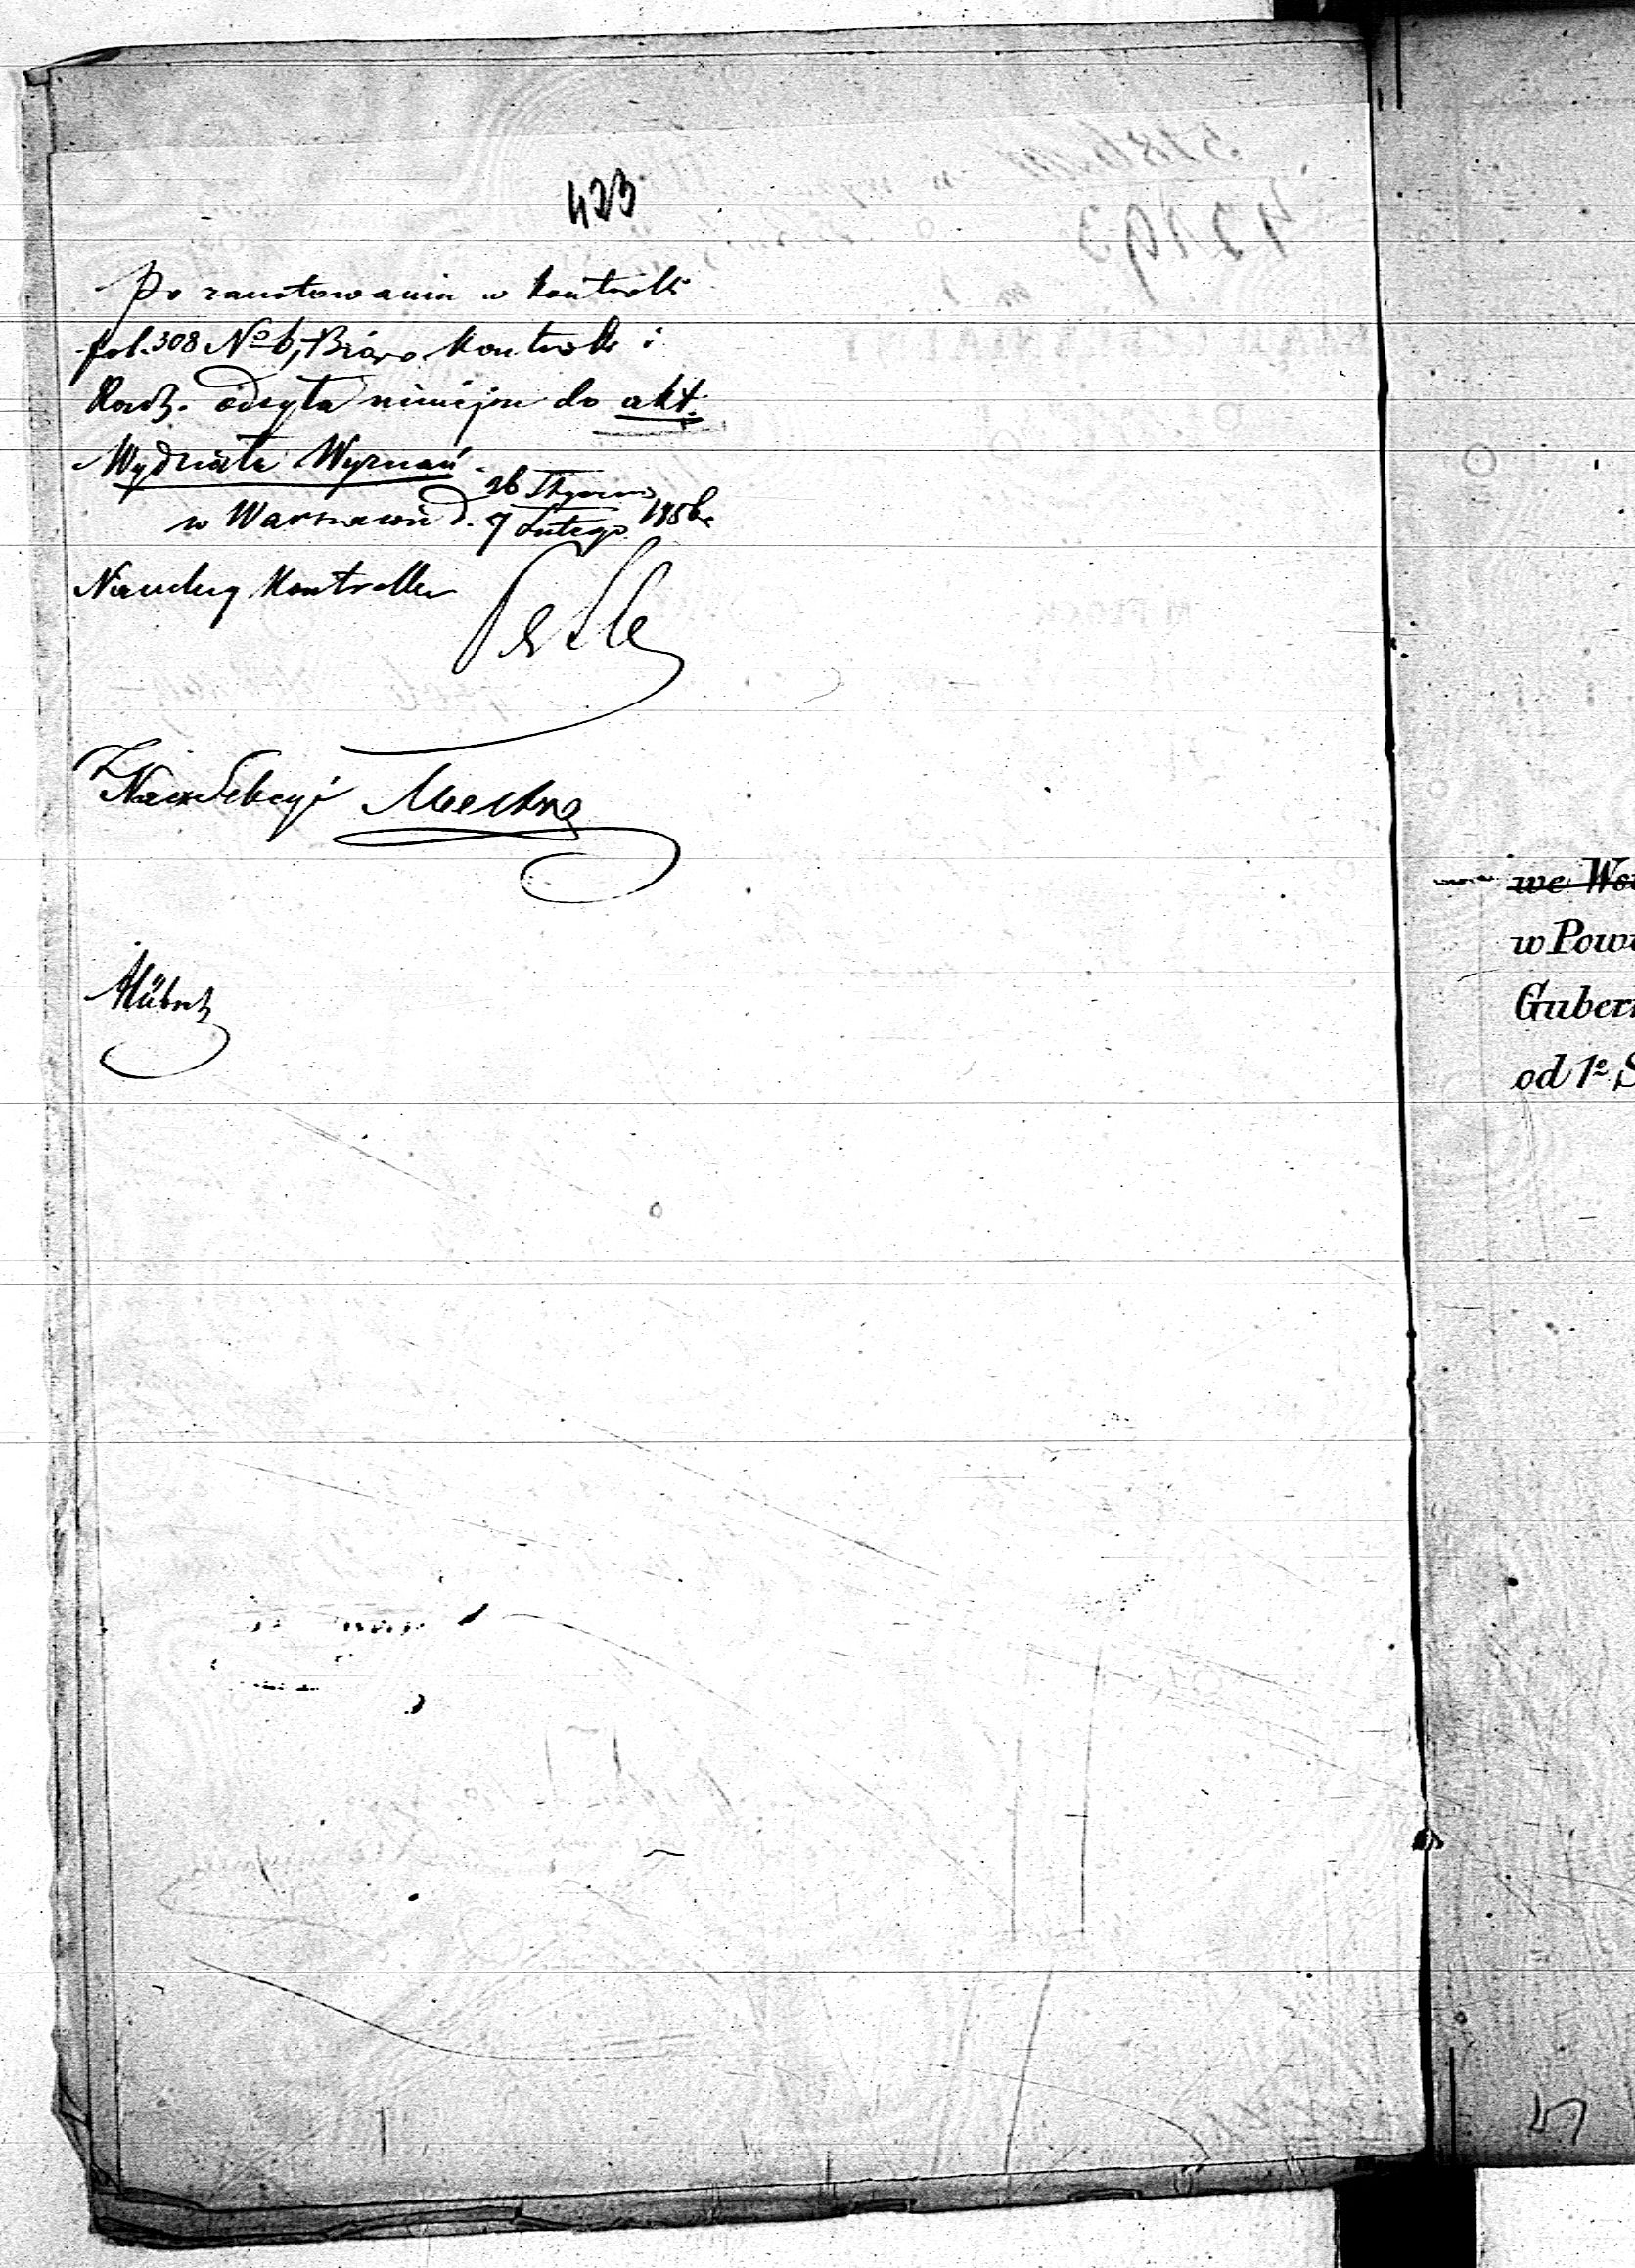 423
Po zanotowaniu w kontrolli
fol. 308 Nº 6, Bióro Kontrolli i
Rach. odsyła niniejsze do akt.
Wydziału Wyznań.
w Warszawie d. 26 Stycznia / 7 Lutego 1856 r.
Naczelny Kontroller
Z. Nacz Sekcyi
Hübsch
we
w Powi
Gubern
od 1º S